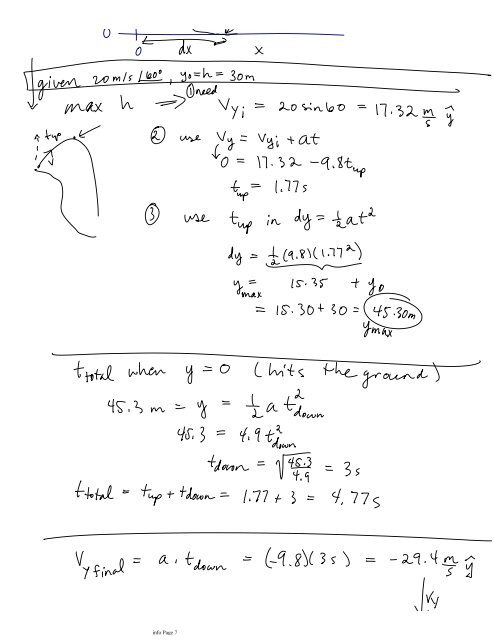 0
0 dx x
given 20 m/s ∠60°, y₀ = h = 30m
max h ⇒ ① need V_yi = 20 sin 60 = 17.32 m/s ŷ
t_up
② use V_y = V_yi + at
0 = 17.32 - 9.8 t_up
t_up = 1.77s
③ use t_up in dy = ½at²
dy = ½(9.8)(1.77²)
y_max = 15.35 + y₀
= 15.30 + 30 = 45.30m
y_max
t_total when y = 0 (hits the ground)
45.3 m = y = ½ a t²_down
45.3 = 4.9 t²_down
t_down = √(45.3/4.9) = 3s
t_total = t_up + t_down = 1.77 + 3 = 4.77s
V_y final = a · t_down = (-9.8)(3s) = -29.4 m/s ŷ
V_y
info Page 7